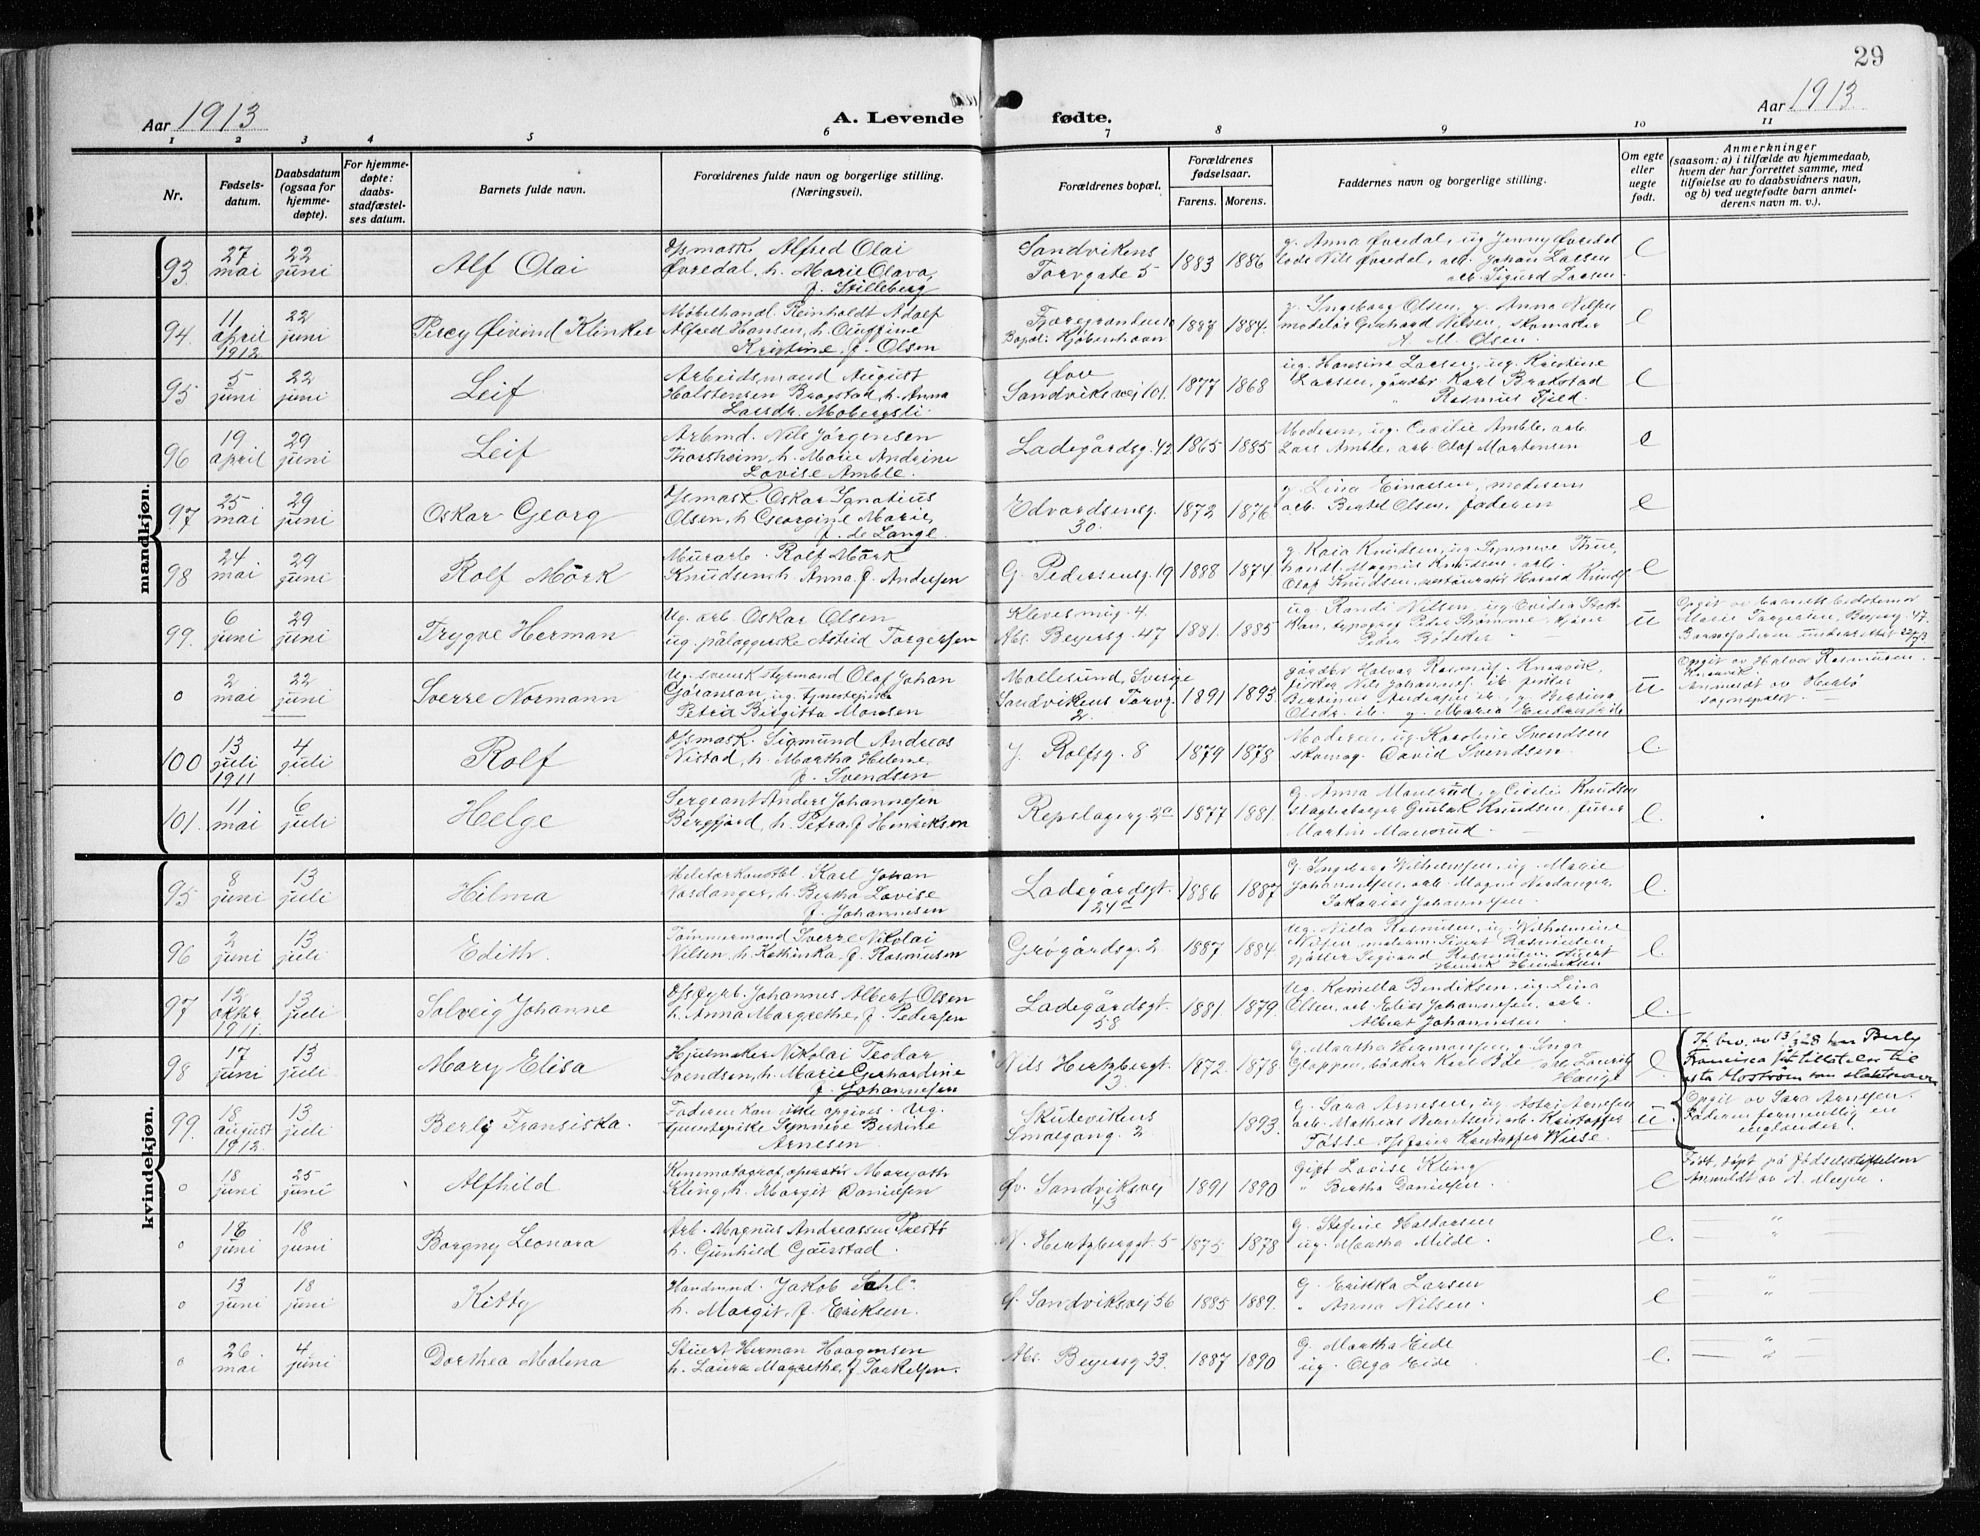 29
Aar 1913
A. Levende fødte.
Aar 1913
1 2 3 4 5 6 7 8 9 10 11
Nr.
Fødsels-
datum.
Daabsdatum
(ogsaa for
hjemme-
døpte).
For hjemme-
døpte:
daabs-
stadfæstel-
ses datum.
Barnets fulde navn.
Forældrenes fulde navn og borgerlige stilling.
(Næringsvei).
Forældrenes bopæl.
Forældrenes
fødselsaar.
Farens. Morens.
Faddernes navn og borgerlige stilling.
Om egte
eller
uegte
født.
Anmerkninger
(saasom: a) i tilfælde av hjemmedaab,
hvem der har forrettet samme, med
tilføielse av to daabsvidners navn,
og b) ved uegtefødte barn anmel-
derens navn m. v.).
mandkjøn.
93 27 mai 22 juni Alf Olai
Alfred Olai
Øvredal, h. Marie Olava,
f. Stilleberg
Sandvikens
Torvgate 5 1883 1886
g. Anna Øvredal, ug Jenny Øvredal
Nils Øvredal, arb. Johan Larsen
arb. Sigurd Larsen e
94. 11 april 1912 22 juni Percy Øivind Klinker
Møbelhandl. Reinholdt Adolf
Alfred Hansen, h. Oluffine
Kristine, f. Olsen
Bopæl: Kjøbenhavn 1887 1884.
g. Ingeborg Olsen, g. Anna Nilsen
Gerhard Nilsen, skomaker
A. M. Olsen. e
95 5 juni 22 juni Leif
Arbeidsmand August
Holstensen Bragstad, h. Anna
Larsdr. Mobergsli.
Øvre
Sandviksvei 101. 1877 1868
ug. Hansine Larsen, ug. Kristine
Larsen, gårdbr Karl Brakstad
" Rasmus Fjeld. e
96 19 april 29 juni Leif
Arbmd. Nils Jørgensen
Thorsheim, h. Marie Andrine
Lovise Amble.
Ladegårdsg. 42 1865 1885
Moderen, ug. Cecilie Amble, arb.
Lars Amble, arb. Olaf Mortensen e
97 25 mai 29 juni Oskar Georg
Oskar Ignatius
Olsen, h. Georgine Marie,
f. de Lange.
Edvardseng.
30. 1872 1876
g. Lina Einarsen, moderen
arb. Bertel Olsen, faderen e
98 24 mai 29 juni Rolf Mörk
Murarb. Rolf Mörk
Knudsen, h. Anna, f. Andersen
G. Pedersensg. 19 1888 1874
g. Kaia Knudsen, ug Synneve Thue,
handl. Magnus Knudsen, arb.
Olaf Knudsen, restauratør Harald Knuds e
99. 6 juni 29 juni Trygve Herman
Ug. arb. Oskar Olsen
ug. påleggerske Astrid Torgersen
Klevesmug. 4.
Abs. Beyersg. 47 1881. 1885
ug. Randi Nilsen, ug Ovidia
typograf Peder u
Opgit av barnets bedstemor
Marie Torgersen, Beyersg 47.
Barnefaderen underrettet
o 2 mai 22 juni Sverre Normann
Ug. svensk styrmand Olaf Johan
Göranson, ug. tjenestepike
Petria Birgitta Monsen
Mollesund, Sverige
Sandvikens Torvg.
2. 1891 1893
gårdbr Halvor Rasmus. Knarvik,
fisker Nils Johannes. ib. fisker
u
Opgit av Halvor Rasmussen.
Knarvik.
Anmeldt av Herlø
sogneprest.
100 13 juli 1911 4 juli Rolf
Sigmund Andreas
Nistad, h. Martha Helene,
f. Svendsen
J. Rolfsg. 8 1879 1878
Moderen, ug. Karoline Svendsen
skomag. David Svendsen e.
101. 11 mai 6 juli Helge
Sergeant Anders Johannesen
Bergfjord, h. Petra, f. Henriksen
Repslagerg. 2a 1877 1881.
g. Anna Manerud, g Cecilie Knudsen
Gustak Knudsen, furer
Martin Manerud. e.
kvindekjøn.
95 8 juni 13 juli Hilma
Karl Johan
Nordanger, h. Bertha Lovise
f. Johannesen
Ladegårdsgt.
24d 1886 1887
g. Ingeborg Wilhelmsen, ug. Marie
Johannesen, arb. Magne Nordanger,
Sakarias Johannesen. e.
96 2 juni 13 juli Edith.
Tömmermand Sverre Nikolai
Nilsen, h. Kathinka, f. Rasmusen
Grøgårdsg. 2 1887 1884.
Ug. Milla Rasmusen, ug. Wilhelmine
Nilsen
Sigvard Rasmusen
Henrik Henriksen e.
97 12 oktbr 1911. 13 juli Solveig Johanne
Johannes Albert Olsen
h. Anna Margrethe, f. Pedersen
Ladegårdsgt.
58 1881. 1879
Ug. Kamilla Bendiksen, ug. Lina
Olsen, arb. Elias Johannesen, arb.
Albert Johannesen e.
98 17 juni 13 juli Mary Elisa
Hjulmaker Nikolai Teodor
Svendsen, h. Marie Gerhardine
f. Johannesen
Nils Hertzbergt.
3 1872 1878
g. Martha Hermansen, g Inga
Gloppen, bøcker Karl Eide, arb. Lauritz
Hauge e
99. 18 august 1912 13 juli Berly Fransiska.
Faderen kan ikke opgives. Ug.
tjenestepike Synneve Bertine
Arnesen
Skutevikens
Smalgang. 2 1893.
g. Sara Arnesen, ug. Astri Arnesen
arb. Mathias Berntsen, arb. Kristoffer
Tosse, Kristoffer Wiese. u.
If. brev. av 13/3 28 har Berly
Francisca fåt tillatelse til
Opgit av Sara Arnesen.
Faderen formentlig en
englænder.
o 18 juni 25 juni Alfhild
Kinematograf operatør
Kling, h. Margit Danielsen
Øv. Sandviksvei
43 1891 1890
Gift Lovise Kling
" Bertha Danielsen. e
Født, døpt på fødselsstiftelsen
Anmeldt av A. Meyer.
o 16 juni 18 juni Borgny Leonora
Arb. Magnus Andreassen Prestö
h. Gunhild Gaustad.
N. Hertzberggt. 5 1875 1878
g. Stefine Haldorsen
ug. Martha Milde. e. "
o 13 juni 18 juni Kitty
Handmnd. Jakob
h. Margit, f. Eriksen.
Sandviksvei 56 1885 1889.
g. Erikka Larsen
" Anna Nilsen. e "
o 26. mai 4 juni Dorthea Molena
Stuert Herman Haagensen
h. Laura Magrethe, f Torkelsen.
Abs. Beyersg 33. 1887 1890
g. Martha Eide
ug. Olga Eide e. "